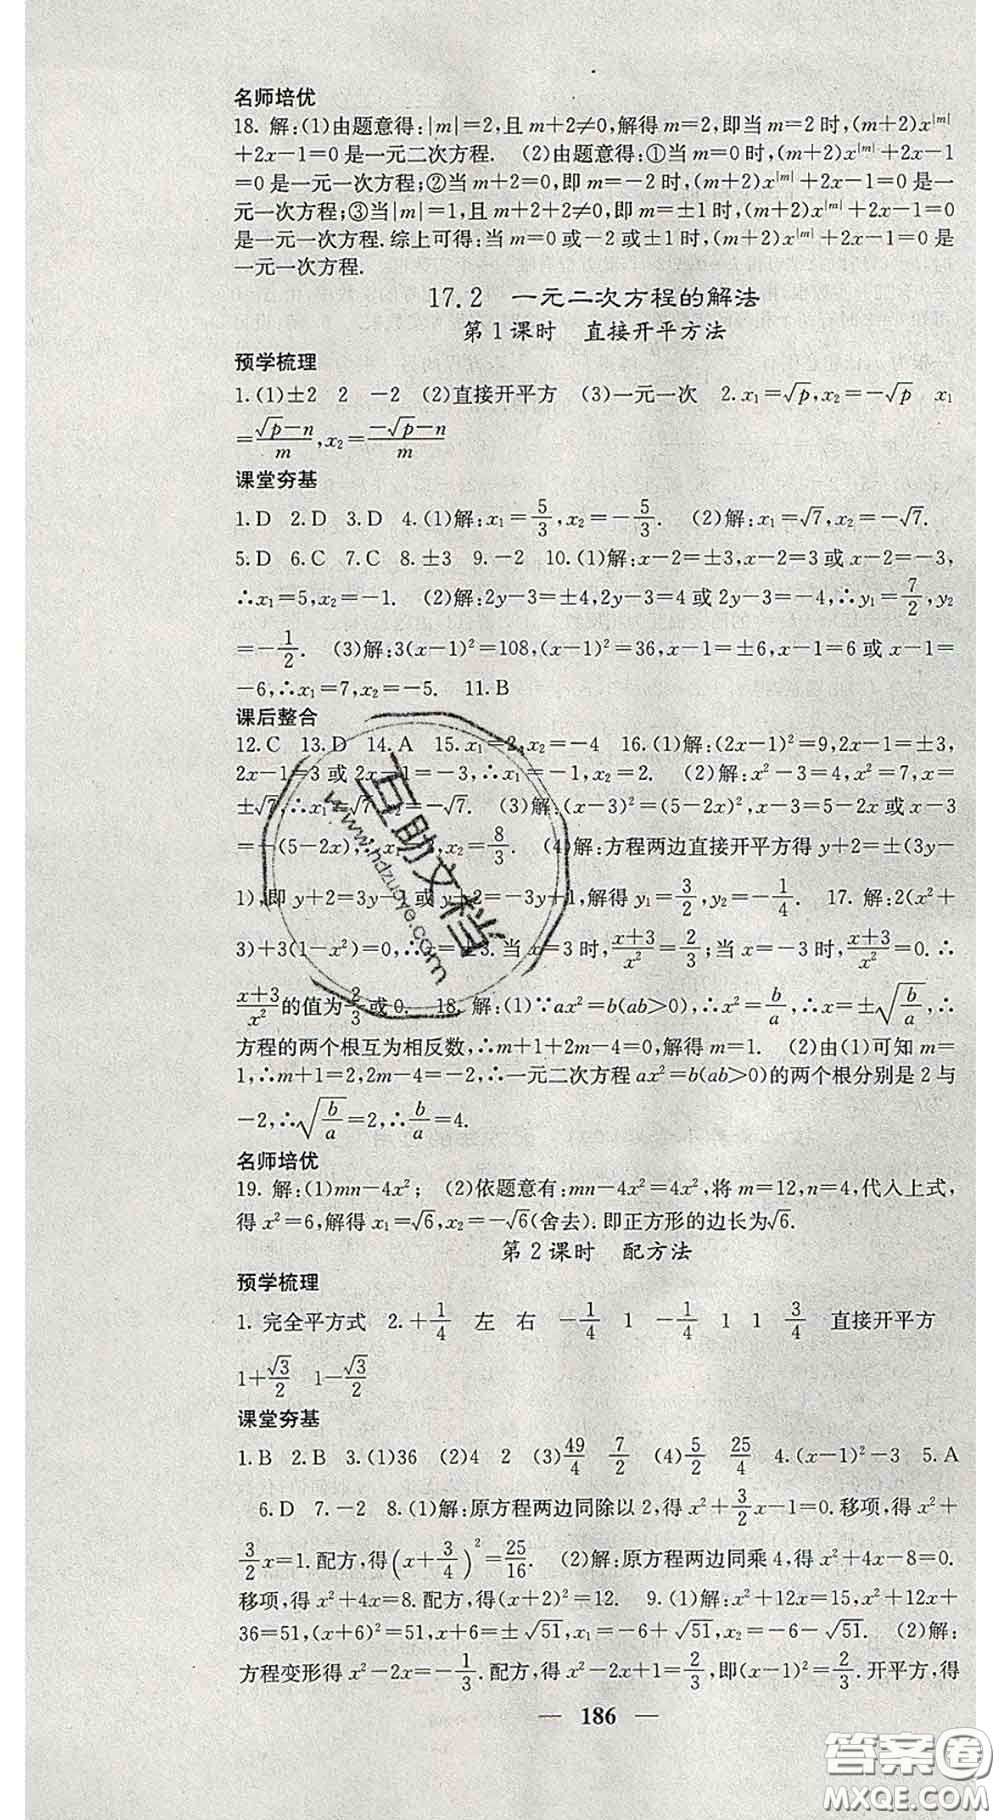 名师培优
18. 解:(1)由题意得:|m|=2,且 m+2≠0,解得 m=2,即当 m=2 时,(m+2)x^|m|
+2x-1=0 是一元二次方程. (2)由题意得:①当 m=0 时,(m+2)x^|m|+2x-1
=0 是一元一次方程;②当 m+2=0,即 m=-2 时,(m+2)x^|m|+2x-1=0 是一
元一次方程;③当|m|=1,且 m+2+2≠0,即 m=±1 时,(m+2)x^|m|+2x-1=0
是一元一次方程.综上可得:当 m=0 或-2 或±1 时,(m+2)x^|m|+2x-1=0 是
一元一次方程.
17.2 一元二次方程的解法
第 1 课时 直接开平方法
预学梳理
1.(1)±2 2 -2 (2)直接开平方 (3)一元一次 2.x₁=√p,x₂=-√p x₁
=(√p-n)/m,x₂=(-√p-n)/m
课堂夯基
1.D 2.D 3.D 4.(1)解:x₁=5/3,x₂=-5/3. (2)解:x₁=√7,x₂=-√7.
5.D 6.C 7.C 8.±3 9.-2 10.(1)解:x-2=±3,x-2=3 或 x-2=-3,
∴x₁=5,x₂=-1. (2)解:2y-3=±4,2y-3=4 或 2y-3=-4,∴y₁=7/2,y₂
=-1/2. (3)解:3(x-1)²=108,(x-1)²=36,x-1=±6,x-1=6 或 x-1=
-6,∴x₁=7,x₂=-5. 11.B
课后整合
12.C 13.D 14.A 15.x₁=2,x₂=-4 16.(1)解:(2x-1)²=9,2x-1=±3,
2x-1=3 或 2x-1=-3,∴x₁=-1,x₂=2. (2)解:x²-3=4,x²=7,x=
±√7,∴x₁=√7,x₂=-√7. (3)解:(x-3)²=(5-2x)²,x-3=5-2x 或 x-3
=-(5-2x),∴x₁=2,x₂=8/3. (4)解:方程两边直接开平方得 y+2=±(3y-
1),即 y+2=3y-1 或 y+2=-3y+1,解得 y₁=3/2,y₂=-1/4. 17. 解:2(x²+
3)+3(1-x²)=0,∴x=±3.当 x=3 时,(x+3)/x²=2/3;当 x=-3 时,(x+3)/x²=0.∴
(x+3)/x²的值为2/3或 0. 18. 解:(1)∵ax²=b(ab>0),∴x²=b/a,∴x=±√(b/a),∴
方程的两个根互为相反数,∴m+1+2m-4=0,解得 m=1. (2)由(1)可知 m=
1,∴m+1=2,2m-4=-2,∴一元二次方程 ax²=b(ab>0)的两个根分别是 2 与
-2,∴√(b/a)=2,∴b/a=4.
名师培优
19. 解:(1)mn-4x²; (2)依题意有:mn-4x²=4x²,将 m=12,n=4,代入上式,
得 x²=6,解得 x₁=√6,x₂=-√6(舍去).即正方形的边长为√6.
第 2 课时 配方法
预学梳理
1. 完全平方式 2.+1/4 左 右 -1/4 1 -1/4 1 1 3/4 直接开平方
1+√3/2 1-√3/2
课堂夯基
1.B 2.B 3.(1)36 (2)4 2 (3)49/4 7/2 (4)5/2 25/4 4.(x-1)²-3 5.A
6.D 7.-2 8.(1)解:原方程两边同除以 2,得 x²+3/2x-1=0.移项,得 x²+
3/2x=1.配方,得(x+3/4)²=25/16. (2)解:原方程两边同乘 4,得 x²+4x-8=0.
移项,得 x²+4x=8.配方,得(x+2)²=12. 9.(1)解:x²+12x=15,x²+12x+
36=51,(x+6)²=51,x+6=±√51,x₁=-6+√51,x₂=-6-√51. (2)解:
方程变形得 x²-2x=-1/3.配方,得 x²-2x+1=2/3,即(x-1)²=2/3.开平方,得
— 186 —
互助文档
www.hdzuoye.com
答案圈
MXQE.COM